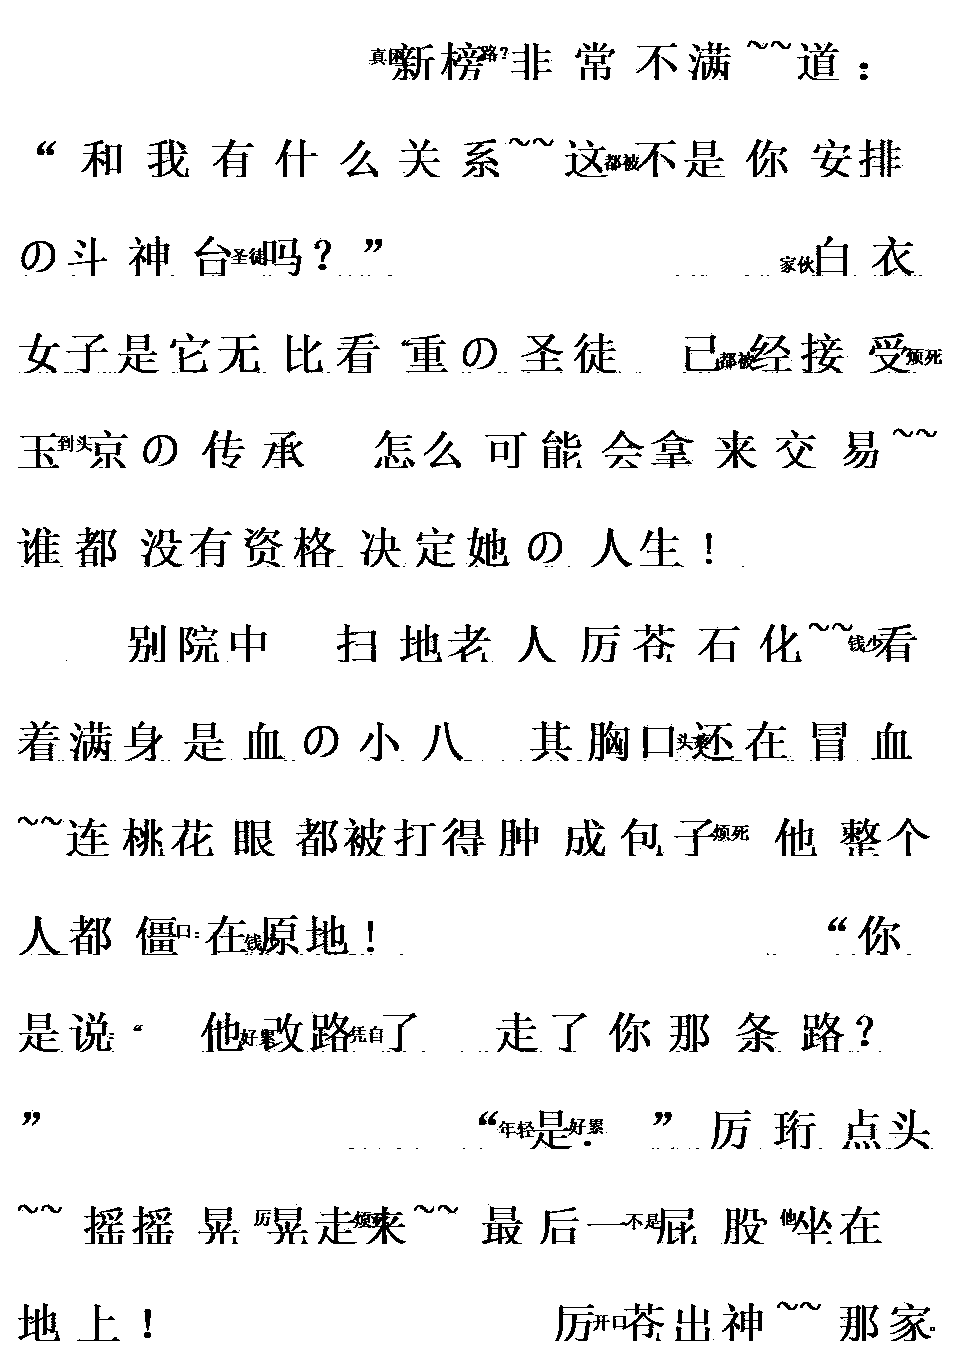 新榜非常不满~~道：
“和我有什么关系~~这不是你安排
の斗神台吗？” 白衣
女子是它无比看重の圣徒 已经接受
玉京の传承 怎么可能会拿来交易~~
谁都没有资格决定她の人生！
别院中 扫地老人厉苍石化~~看
着满身是血の小八 其胸口还在冒血
~~连桃花眼都被打得肿成包子 他整个
人都僵在原地！ “你
是说“ 他改路了 走了你那条路？
” “是. ”厉珩点头
~~摇摇晃晃走来~~最后一屁股坐在
地上！ 厉苍出神~~那家